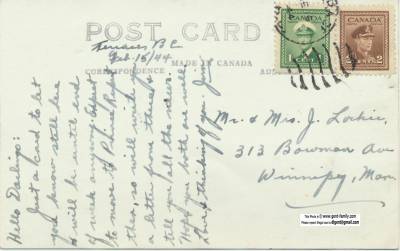 POST CARD
MADE IN CANADA
CORRESPONDENCE
Terrace B.C.
Feb. 15/44
Hello Darlings:
Just a card to let
you know still here
& will be until end
of week anyway. Expect
to move to Prince Rupert
then, so will write
a letter from there &
tell you all the news.
Hope you both are well
& thinking of you. Jim
CANADA
1 CENT
CANADA
2 CENTS 2
Mr. & Mrs. J. Lockie,
313 Bowman Ave
Winnipeg, Man.
This Photo is © www.gent-family.com
Please report illegal use to